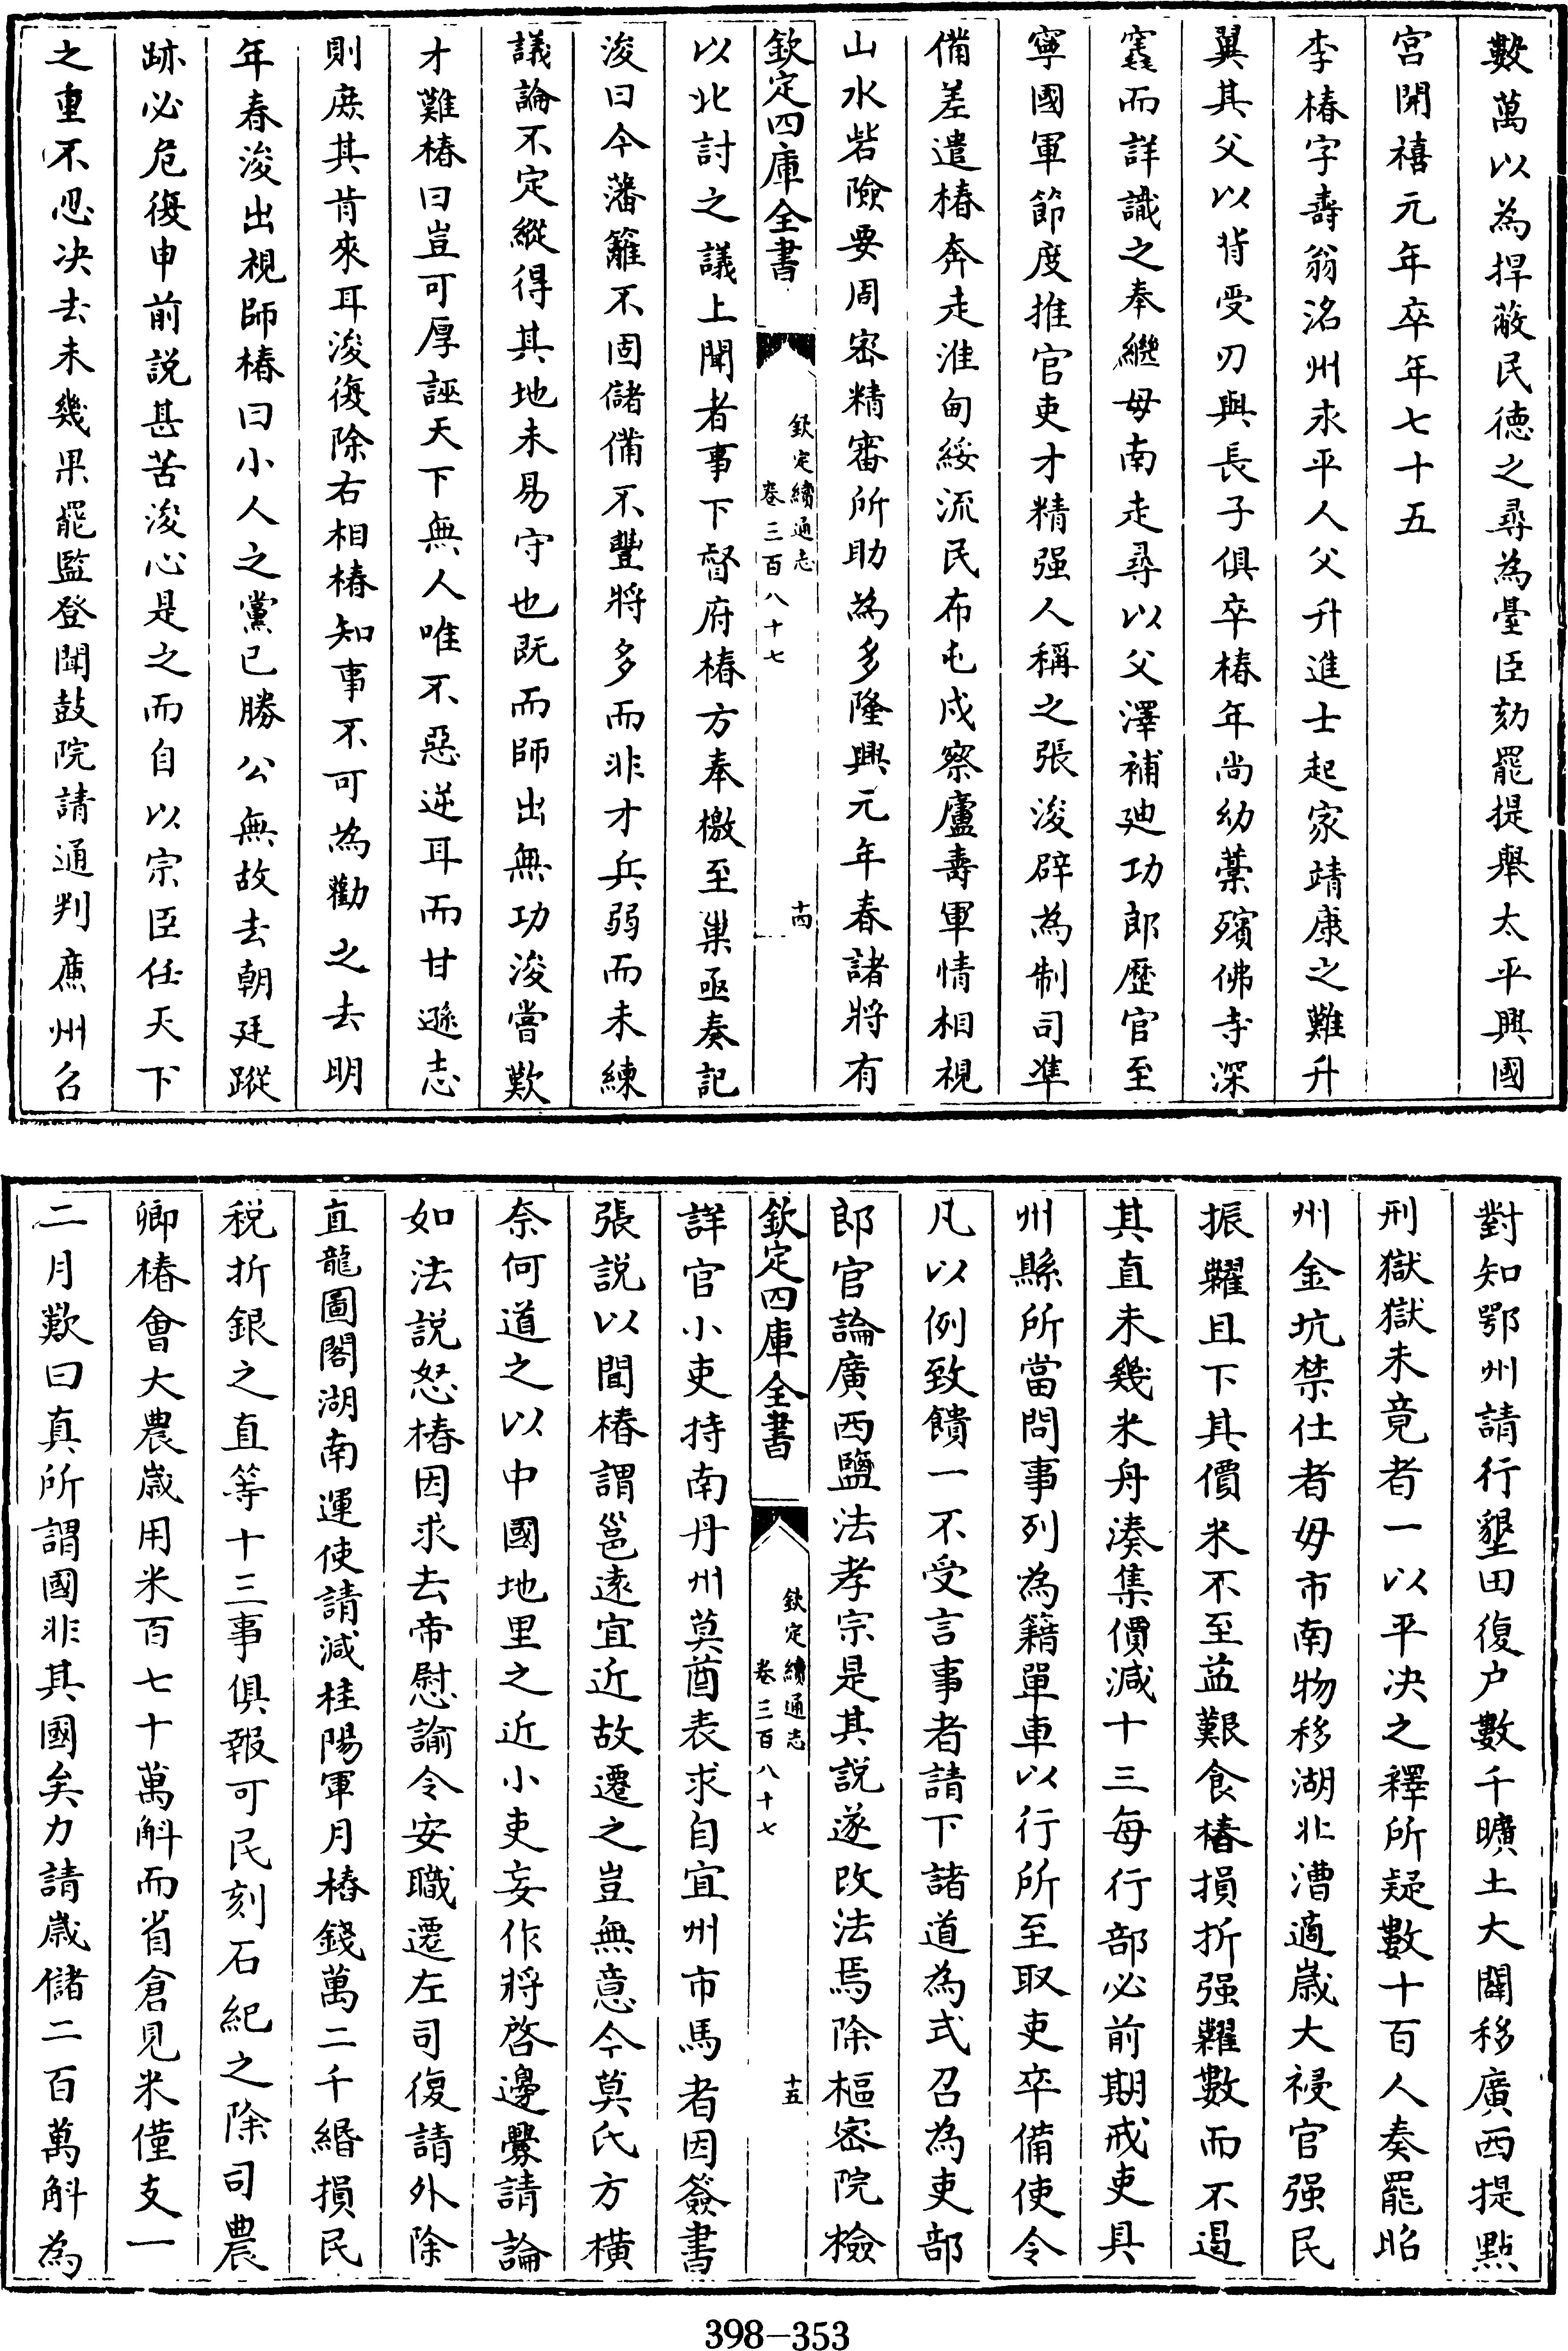 數萬以為捍蔽民徳之尋為臺臣劾罷提舉太平興國
宫開禧元年卒年七十五
李椿字壽翁洺州永平人父升進士起家靖康之難升
翼其父以背受刃與長子俱卒椿年尚幼藁殯佛寺深
窆而詳識之奉繼母南走尋以父澤補廸功郎歴官至
寧國軍節度推官吏才精强人稱之張浚辟為制司準
備差遣椿奔走淮甸綏流民布屯戍察廬壽軍情相視
山水砦險要周密精審所助為多隆興元年春諸將有
欽定四庫全書
欽定續通志
卷三百八十七
十四
以北討之議上聞者事下督府椿方奉檄至巢亟奏記
浚曰今藩籬不固儲備不豐將多而非才兵弱而未練
議論不定縱得其地未易守也既而師出無功浚嘗歎
才難椿曰豈可厚誣天下無人唯不惡逆耳而甘遜志
則庶其肯來耳浚復除右相椿知事不可為勸之去明
年春浚出視師椿曰小人之黨已勝公無故去朝廷蹤
跡必危復申前説甚苦浚心是之而自以宗臣任天下
之重不忍决去未幾果罷監登聞鼓院請通判廉州召
對知鄂州請行墾田復户數千曠土大闢移廣西提點
刑獄獄未竟者一以平决之釋所疑數十百人奏罷昭
州金坑禁仕者毋市南物移湖北漕適歳大祲官强民
振糶且下其價米不至益艱食椿損折强糶數而不遏
其直未幾米舟湊集價減十三每行部必前期戒吏具
州縣所當問事列為籍單車以行所至取吏卒備使令
凡以例致饋一不受言事者請下諸道為式召為吏部
郎官論廣西鹽法孝宗是其説遂改法焉除樞密院檢
欽定四庫全書
欽定續通志
卷三百八十七
十五
詳官小吏持南丹州莫酋表求自宜州市馬者因簽書
張説以聞椿謂邕逺宜近故遷之豈無意今莫氏方横
奈何道之以中國地里之近小吏妄作將啓邊釁請論
如法説怒椿因求去帝慰諭令安職遷左司復請外除
直龍圖閣湖南運使請減桂陽軍月樁錢萬二千緡損民
税折銀之直等十三事俱報可民刻石紀之除司農
卿椿會大農歳用米百七十萬斛而省倉見米僅支一
二月歎曰真所謂國非其國矣力請歳儲二百萬斛為
398-353